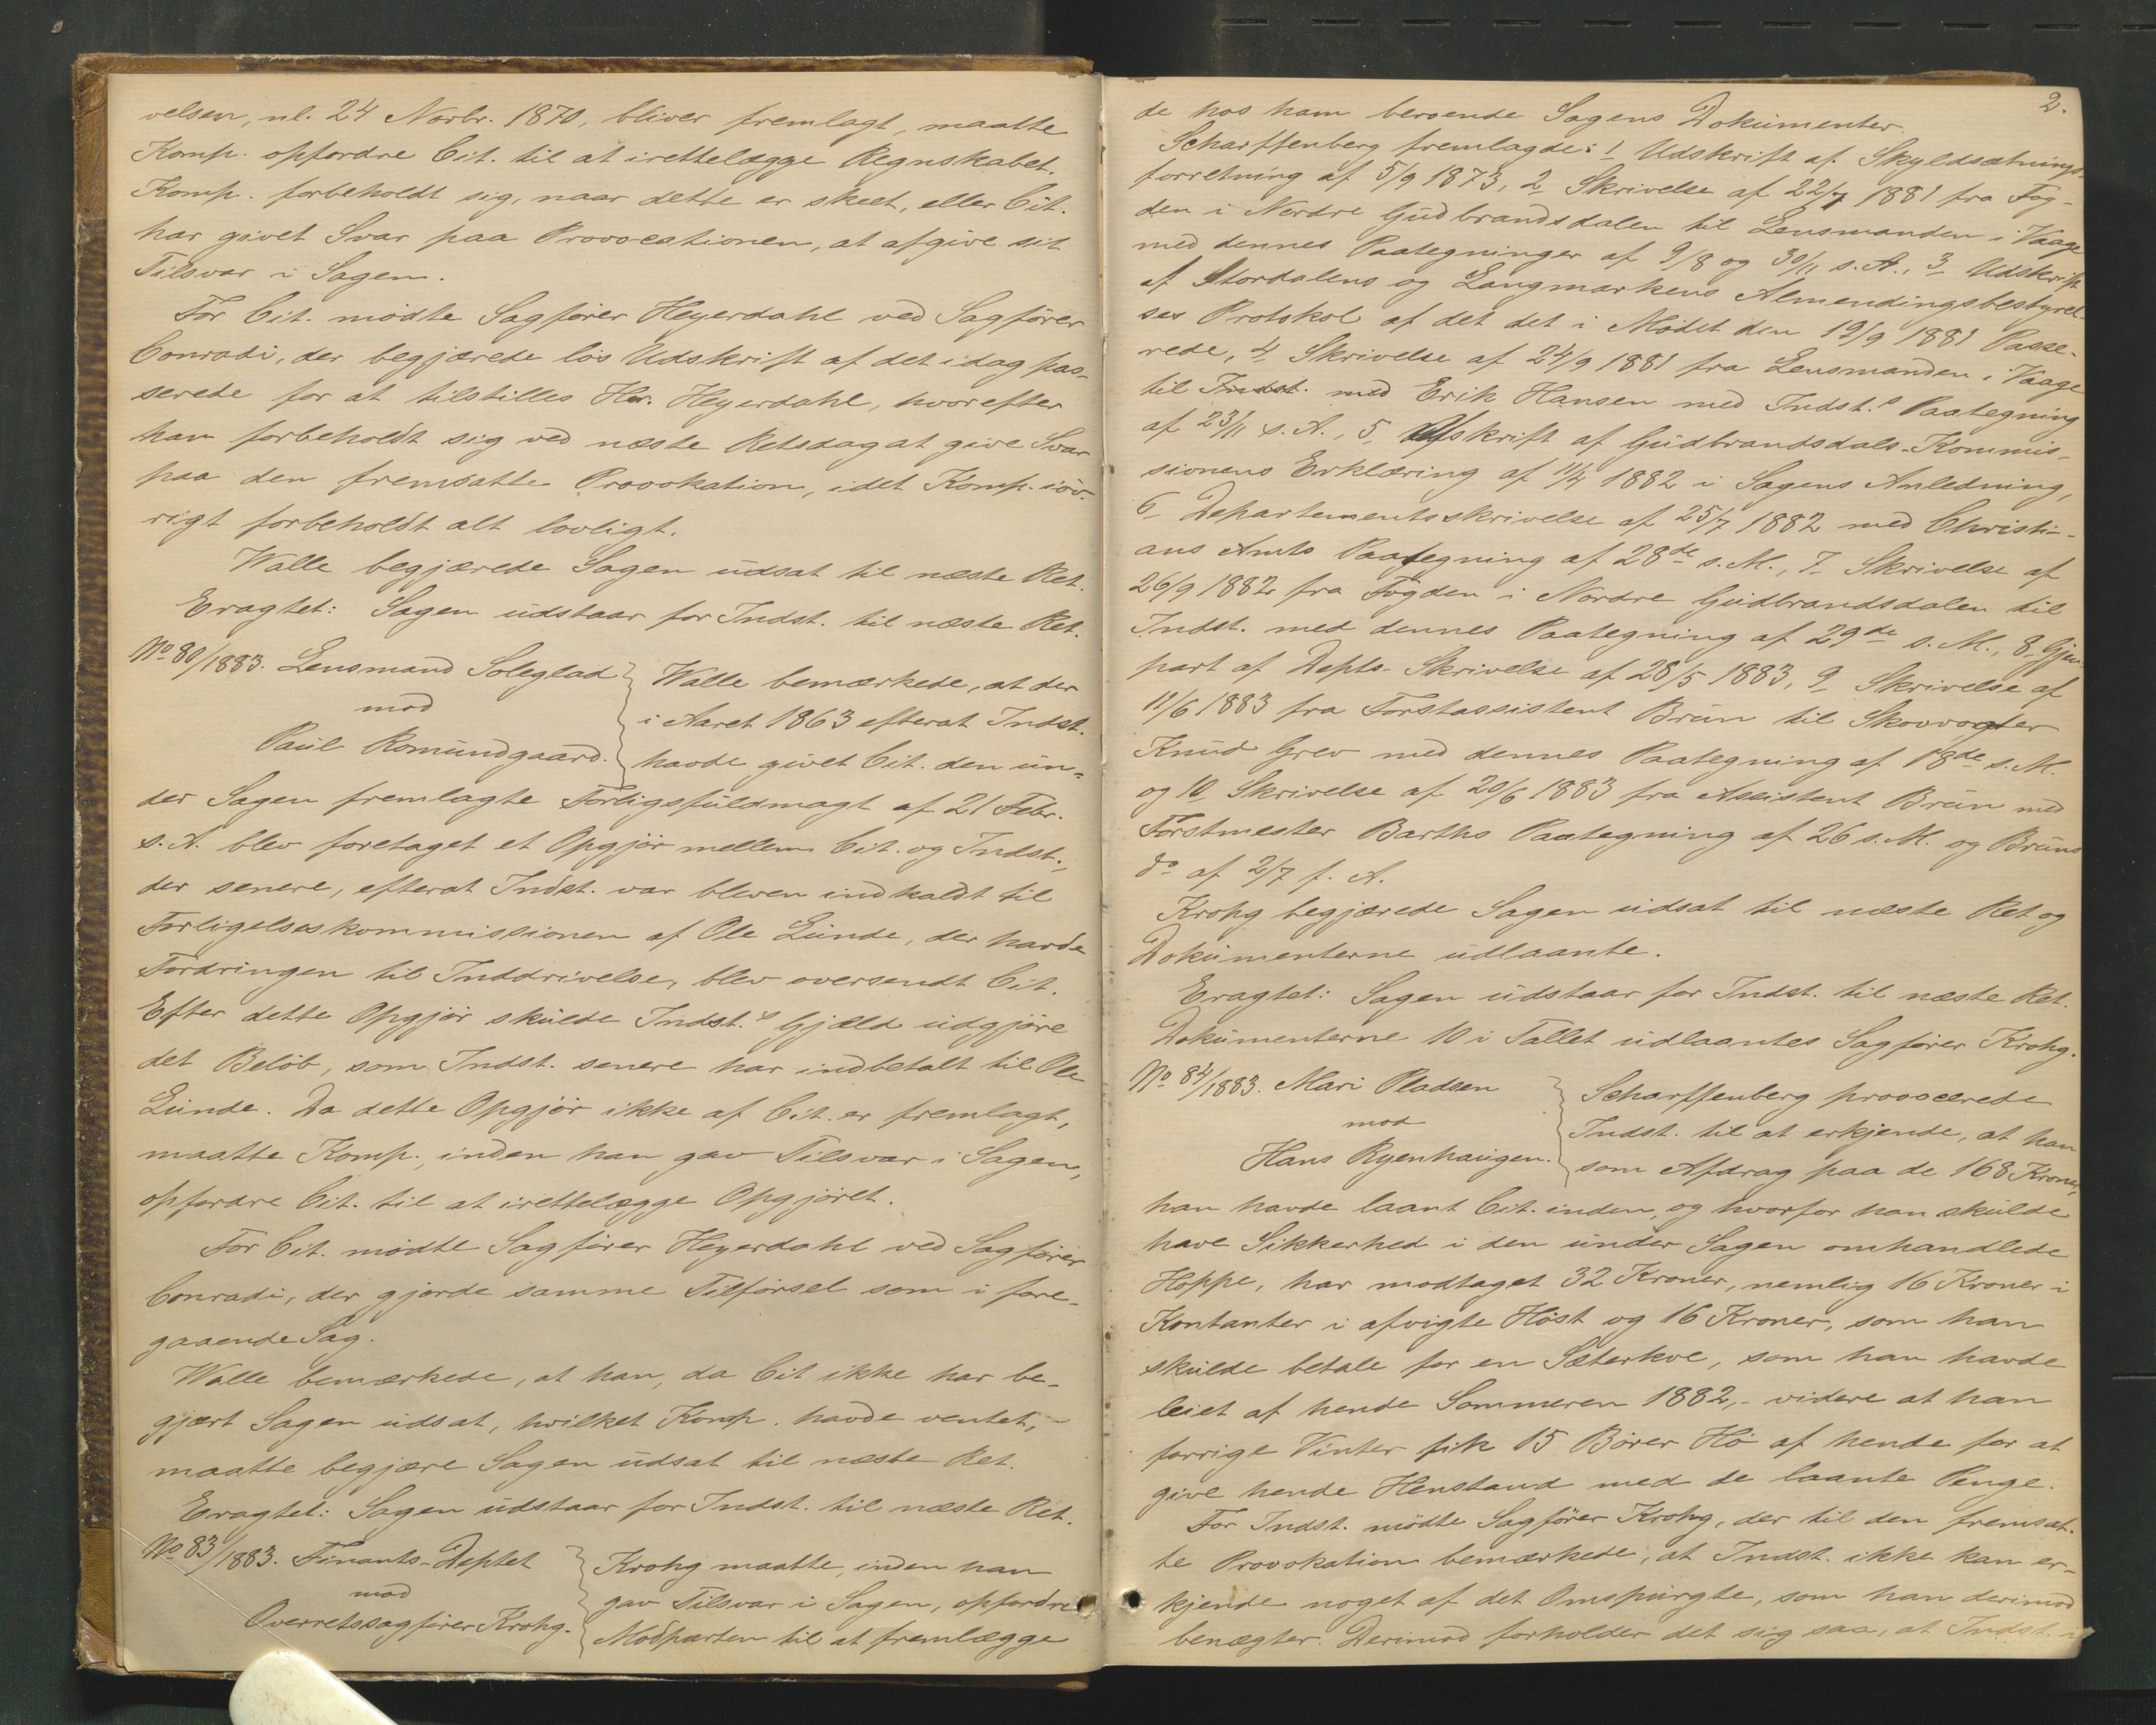 velsen, nl. 24 Novbr. 1870, bliver fremlagt, maatte
Komp. opfordre Cit. til at irettelægge Regnskabet.
Komp. forbeholdt sig, naar dette er skeet, eller Cit.
har givet Svar paa Provocationen, at afgive sit
Tilsvar i Sagen.
For Cit. mödte Sagförer Heyerdahl ved Sagförer
Conradi, der begjærede lös Udskrift af det idag pas-
serede for at tilstilles Hr. Heyerdahl, hvorefter
han forbeholdt sig ved næste Retsdag at give Svar
paa den fremsatte Provokation, idet Komp. iöv-
rigt forbeholdt alt lovligt.
Walle begjærede Sagen udsat til næste Ret.
Eragtet: Sagen udstaar for Indst. til næste Ret.
No 80/1883. Lensmand Soleglad
mod
Paul Romundgaard.
Walle bemærkede, at der
i Aaret 1863 efterat Indst.
havde givet Cit. den un-
der Sagen fremlagte Forligsfuldmagt af 21 Febr.
s. A. blev foretaget et Opgjör mellem Cit. og Indst.,
der senere, efterat Indst. var bleven indkaldt til
Forligelseskommissionen af Ole Lunde, der havde
Fordringen til Inddrivelse, blev oversendt Cit.
Efter dette Opgjör skulde Indst.s Gjæld udgjöre
det Belöb, som Indst. senere har indbetalt til Ole
Lunde. Da dette Opgjör ikke af Cit. er fremlagt,
maatte Komp., inden han gav Tilsvar i Sagen,
opfordre Cit. til at irettelægge Opgjöret.
For Cit. mödte Sagförer Heyerdahl ved Sagförer
Conradi, der gjorde samme Tilförsel som i fore-
gaaende Sag.
Walle bemærkede, at han, da Cit ikke har be-
gjært Sagen udsat, hvilket Komp. havde ventet, -
maatte begjære Sagen udsat til næste Ret.
Eragtet: Sagen udstaar for Indst. til næste Ret.
No 83/1883. Finants-Deptet
mod
Overretssagförer Krohg.
Krohg maatte, inden han
gav Tilsvar i Sagen, opfordre
Modparten til at fremlægge
2.
de hos ham beroende Sagens Dokumenter.
Scharffenberg fremlagde: 1 Udskrift af Skyldsætnings-
forretning af 5/9 1873, 2 Skrivelse af 22/7 1881 fra Fog-
den i Nordre Gudbrandsdalen til Lensmanden i Vaage
med dennes Paategninger af 9/8 og 30/11 s. A., 3 Udskrift
af Stordalens og Langmarkens Almendingsbestyrel-
ses Protokol af det det i Mödet den 19/9 1881 Passe-
rede, 4 Skrivelse af 24/9 1881 fra Lensmanden i Vaage
til Indst. med Erik Hansen med Indst.s Paategning
af 23/11 s. A., 5, Afskrift af Gudbrandsdals-Kommis-
sionens Erklæring af 11/4 1882 i Sagens Anledning,
6 Departementsskrivelse af 25/7 1882 med Christi-
ans Amts Paategning af 28de s. M., 7 Skrivelse af
26/9 1882 fra Fogden i Nordre Gudbrandsdalen til
Indst. med dennes Paategning af 29de s. M., 8 Gjen-
part af Depts-Skrivelse af 28/5 1883, 9 Skrivelse af
11/6 1883 fra Forstassistent Brün til Skovvogter
Knud Grev med dennes Paategning af 18de s. M.
og 10 Skrivelse af 20/6 1883 fra Assistent Brün med
Forstmester Barths Paategning af 26 s. M. og Brüns
do af 2/7 f. A.
Krohg begjærede Sagen udsat til næste Ret og
Dokumenterne udlaante.
Eragtet: Sagen udstaar for Indst. til næste Ret.
Dokumenterne 10 i Tallet udlaantes Sagförer Krohg.
No 84/1883. Mari Pladsen
mod
Hans Ryenhaugen.
Scharffenberg provocerede
Indst. til at erkjende, at han
som Afdrag paa de 168 Kroner,
han havde laant Cit. inden, og hvorfor han skulde
have Sikkerhed i den under Sagen omhandlede
Hoppe, har modtaget 32 Kroner, nemlig 16 Kroner i
Kontanter i afvigte Höst og 16 Kroner, som han
skulde betale for en Sæterkve, som han havde
leiet af hende Sommeren 1882, - videre at han
forrige Vinter fik 15 Börer Hö af hende for at
give hende Henstand med de laante Penge.
For Indst. mödte Sagförer Krohg, der til den fremsat-
te Provokation bemærkede, at Indst. ikke kan er-
kjende noget af det Omspurgte, som han derimod
benægter. Derimod forholder det sig saa, at Indst.